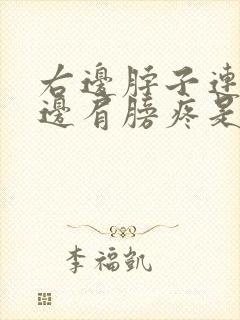 右邊脖子連
邊肩膀疼是
李福凱